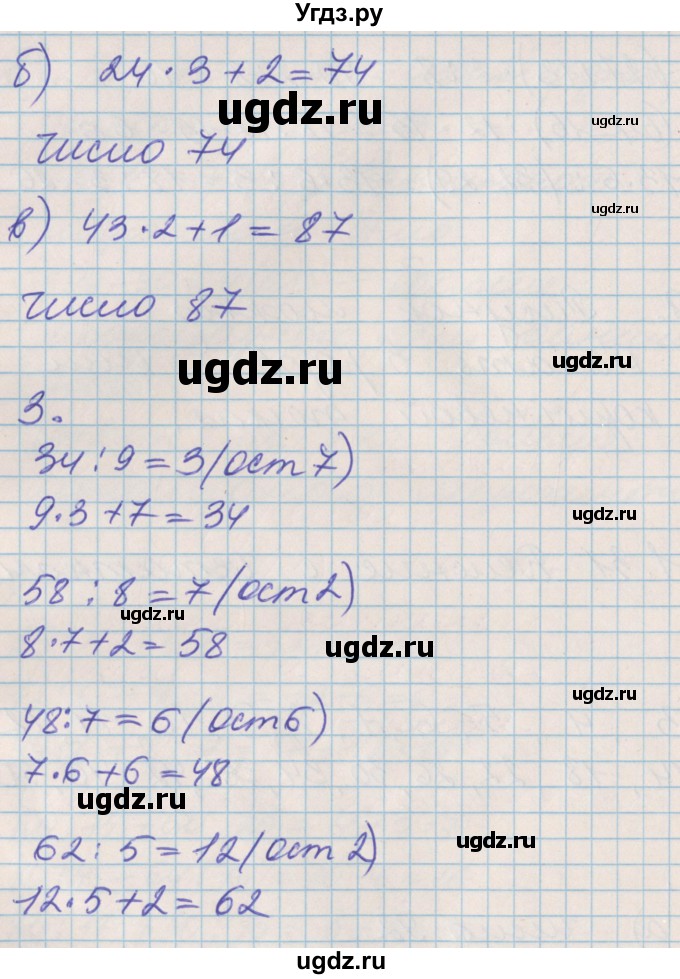 Угдз.ру
б) 24 · 3 + 2 = 74
ugdz.ru
ugdz.ru
число 74
в) 43 · 2 + 1 = 87
ugdz.ru
число 87
ugdz.ru
ugdz.ru
3.
34 : 9 = 3 (ост 7)
9 · 3 + 7 = 34
ugdz.ru
58 : 8 = 7 (ост 2)
ugdz.ru
8 · 7 + 2 = 58
ugdz.ru
ugdz.ru
48 : 7 = 6 (ост 6)
7 · 6 + 6 = 48
ugdz.ru
ugdz.ru
62 : 5 = 12 (ост 2)
12 · 5 + 2 = 62
ugdz.ru
ugdz.ru